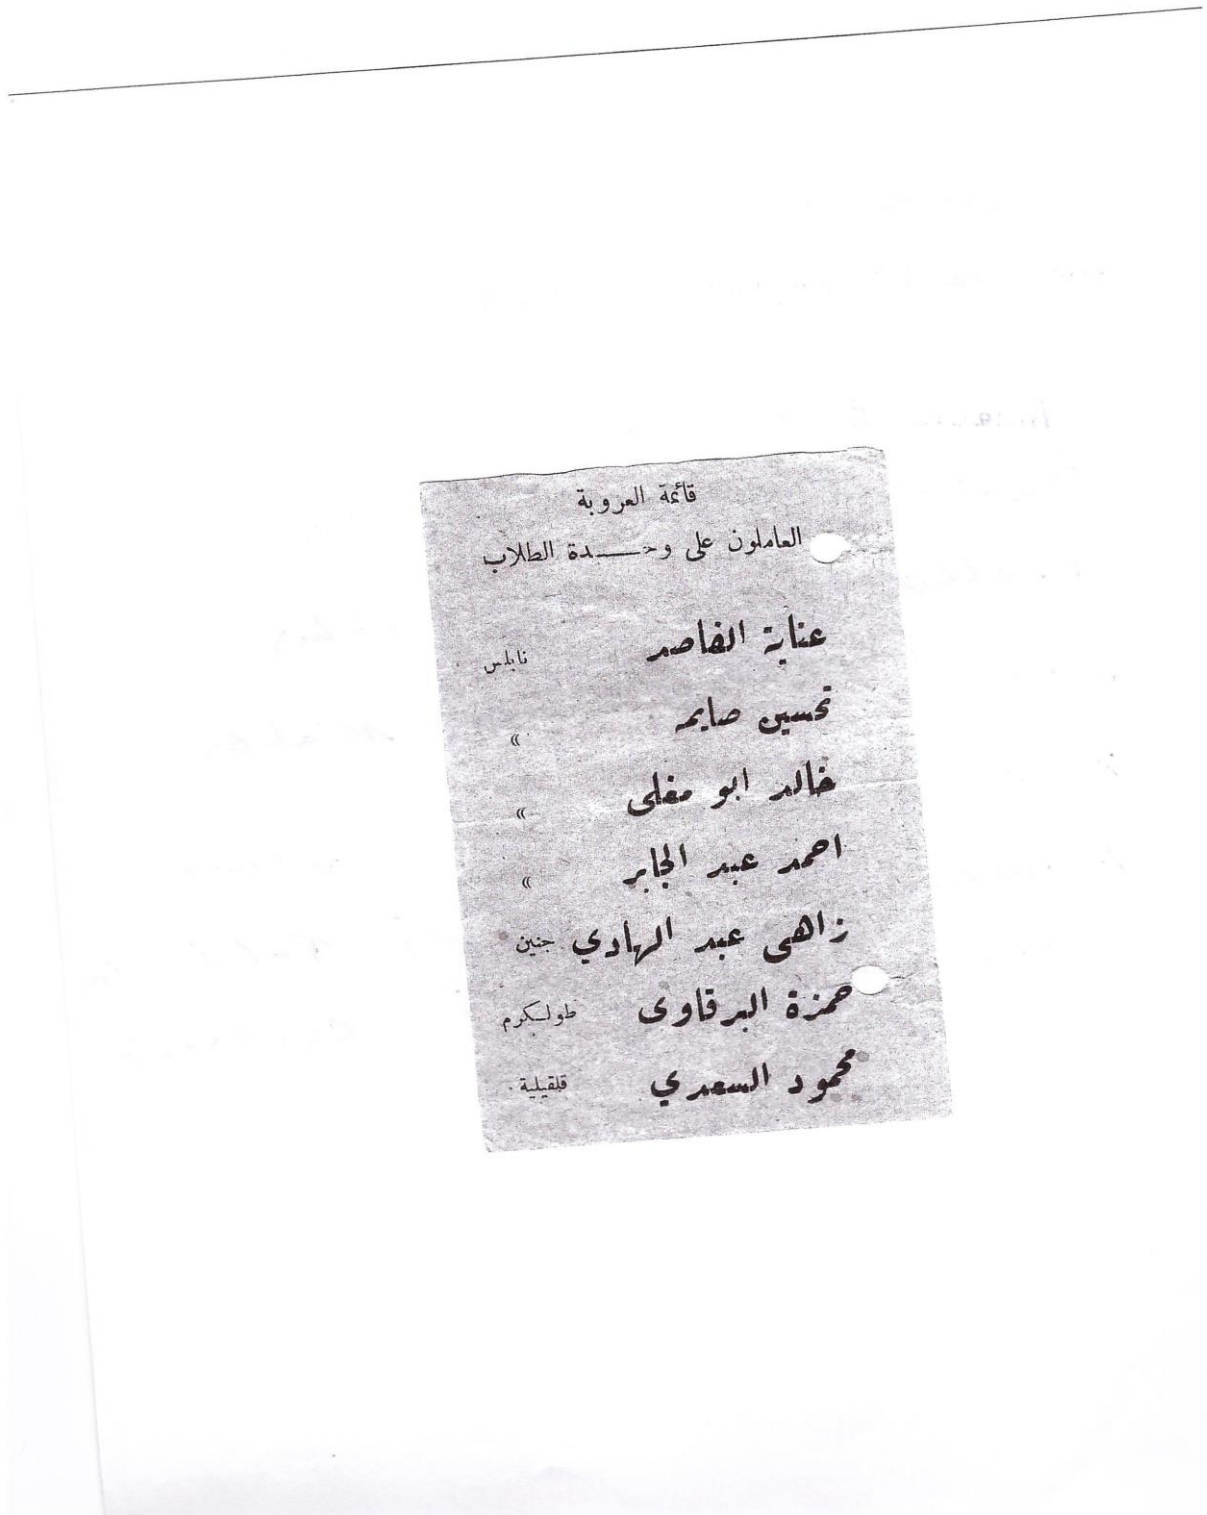 قائمة العروبة
العاملون على وحـــــدة الطلاب
عناية الفاصد نابلس
تحسين صايمه »
خالد ابو مغلى »
احمد عبد الجابر »
زاهى عبد الهادي جنين
حمزة البرقاوى طولكرم
محمود السعدي قلقيلية